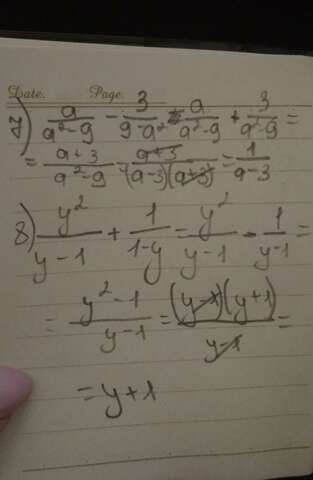 Date. Page.
7) a/(a²-9) - 3/(9-a²) = a/(a²-9) + 3/(a²-9) =
= (a+3)/(a²-9) = (a+3)/((a-3)(a+3)) = 1/(a-3)
8) y²/(y-1) + 1/(1-y) = y²/(y-1) - 1/(y-1) =
= (y²-1)/(y-1) = ((y-1)(y+1))/(y-1) =
= y+1